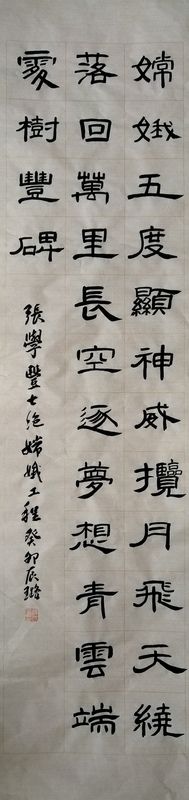 嫦娥五度顯神威攬月飛天繞
落回萬里長空逐夢想青雲端
處樹豐碑
張學豐七絕嫦娥工程癸卯辰璐